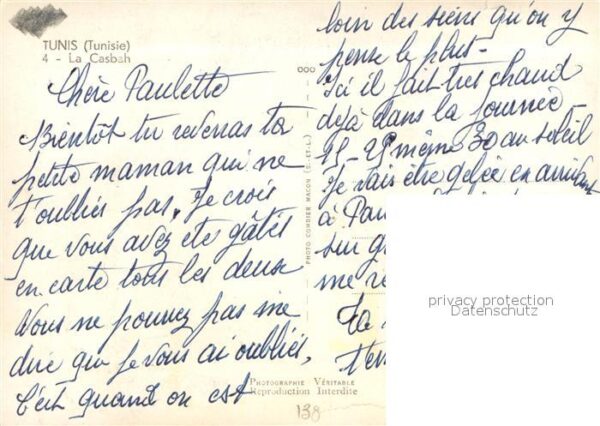 TUNIS (Tunisie)
4 - La Casbah
Chère Paulette
Bientôt tu reverras ta
petite maman qui ne
t'oublies pas. Je crois
que vous avez été gâtés
en carte tous les deux
Vous ne pouvez pas me
dire que je vous ai oubliés,
C'est quand on est
loin des siens qu'on y
pense le plus-
Ici il fait très chaud
déjà dans la journée
25 même 30 au soleil
Je vais être gelée en arrivant
à
sur
me
PHOTO COMBIER MACON (S.-ET-L.)
PHOTOGRAPHIE VÉRITABLE
Reproduction Interdite
138
privacy protection
Datenschutz